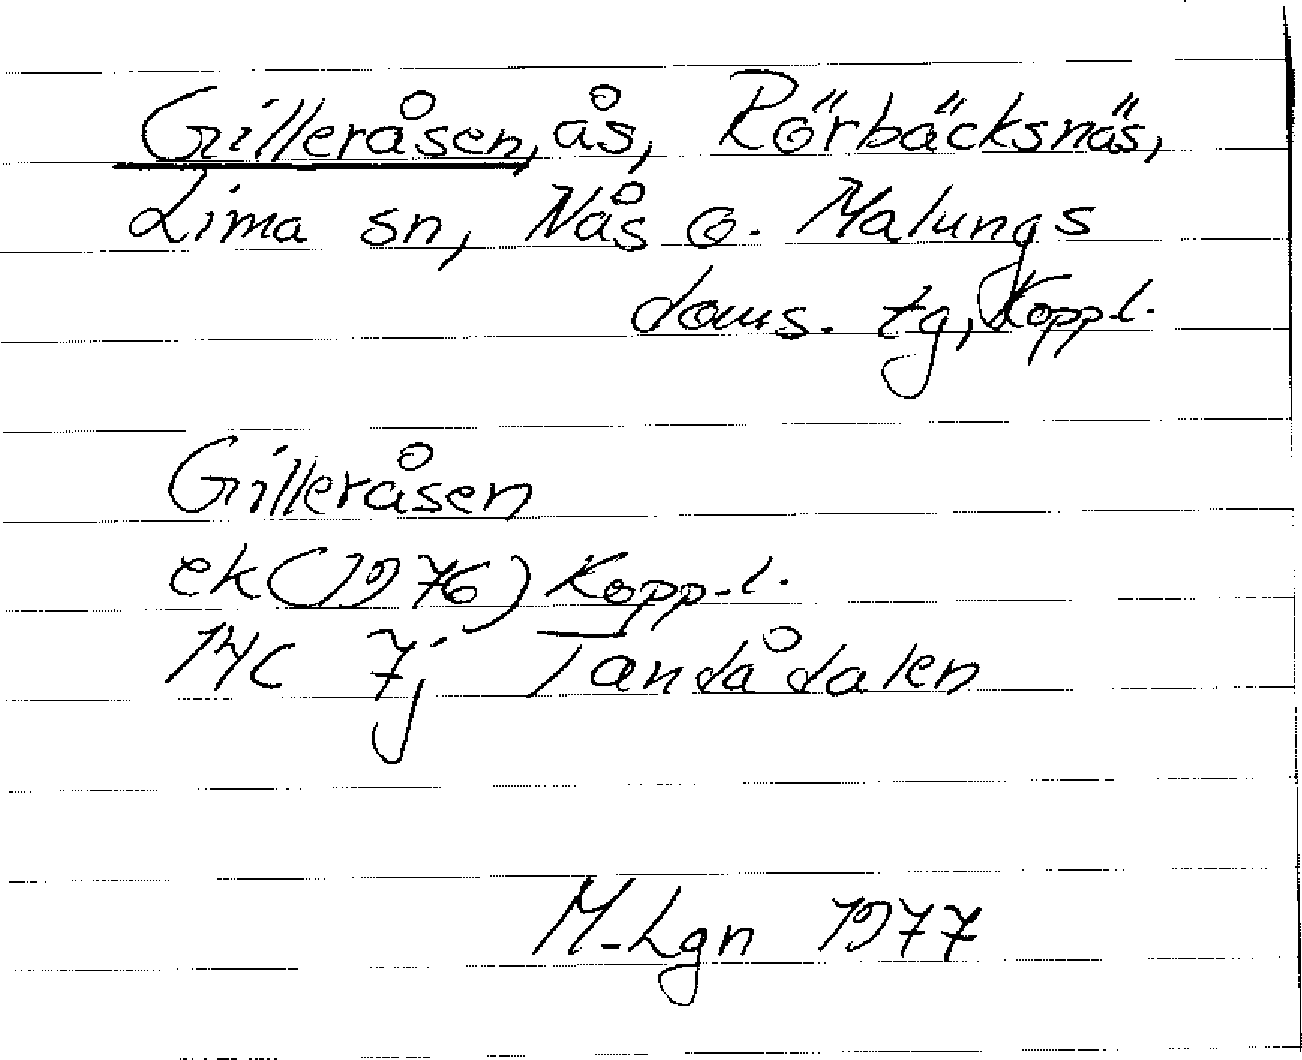 Gilleråsen, ås, Rörbäcksnäs,
Lima sn, Nås o. Malungs
doms. tg, Koppl.
Gilleråsen
ek (1976) Kopp-l.
14C 7j Tandådalen
M-Lgn 1977